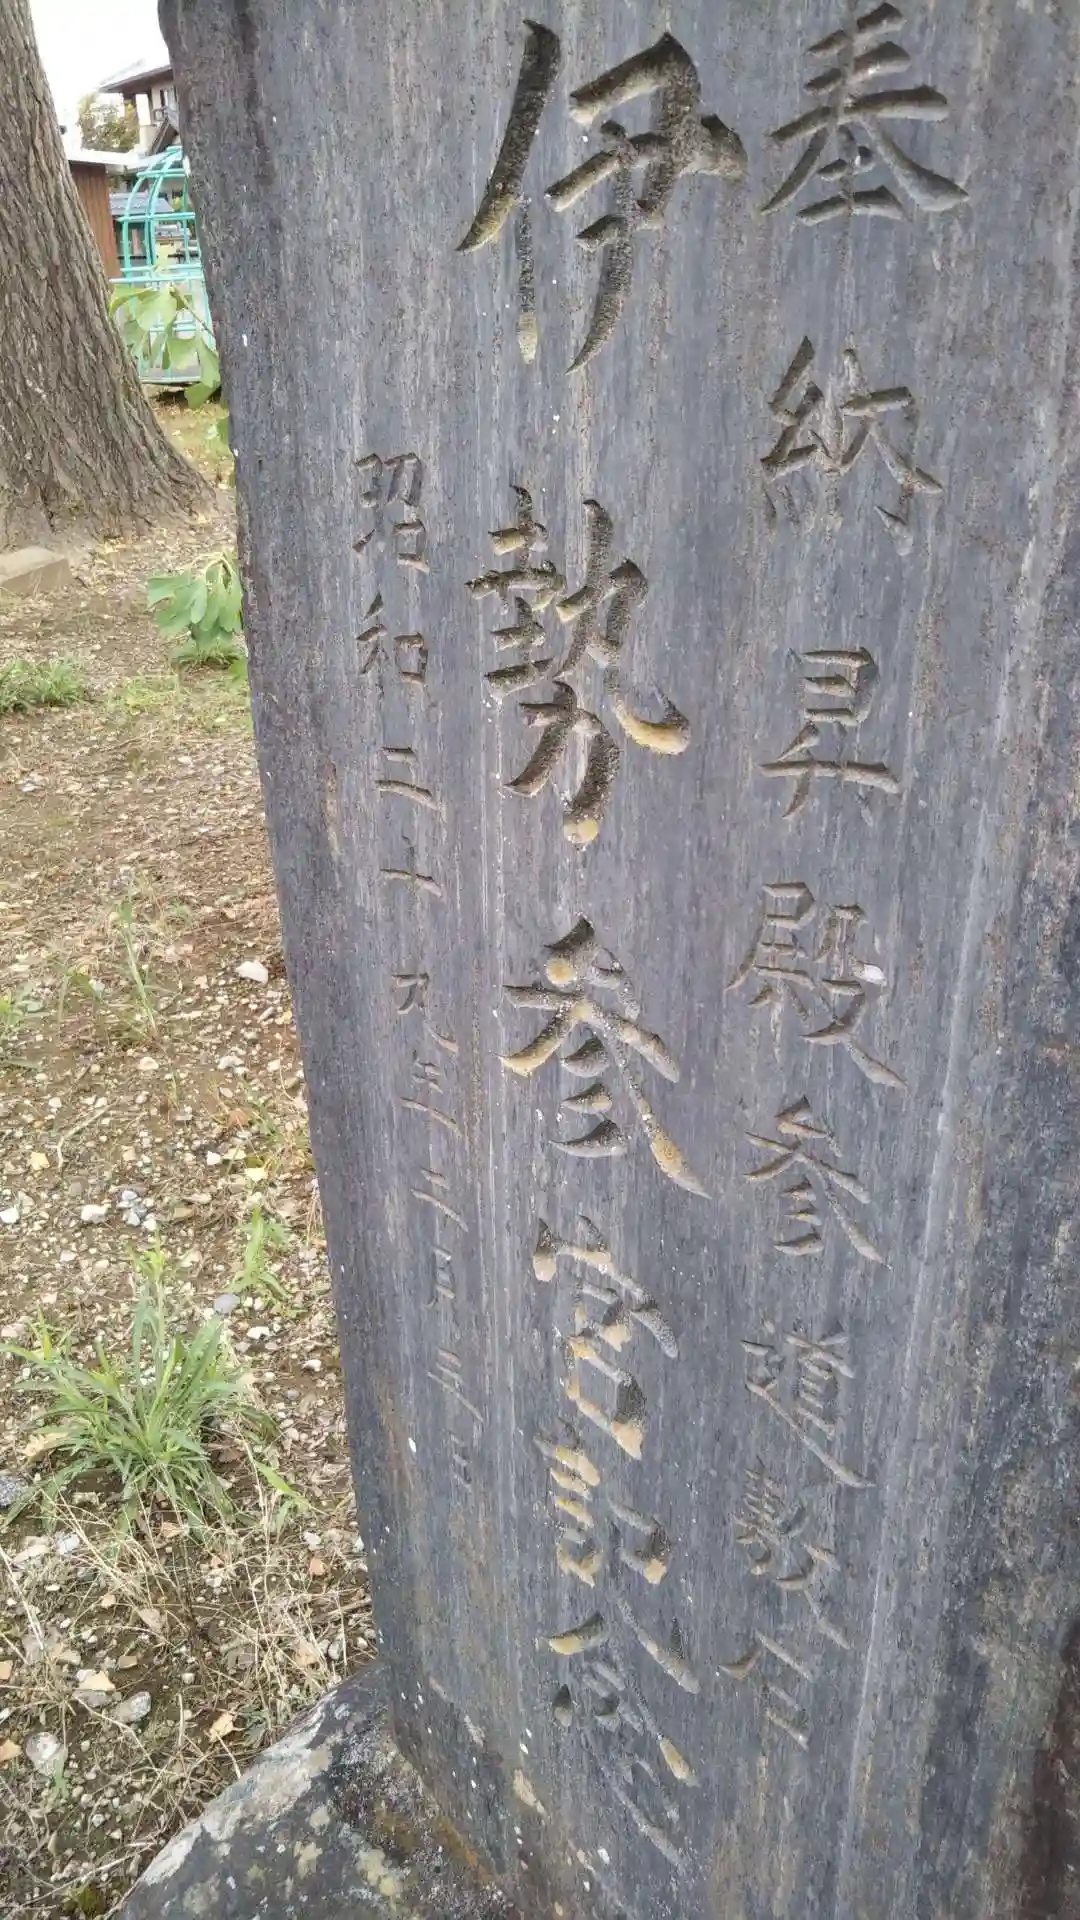 奉納昇殿参道敷石
伊勢参宮記念
昭和三十九年三月三十日